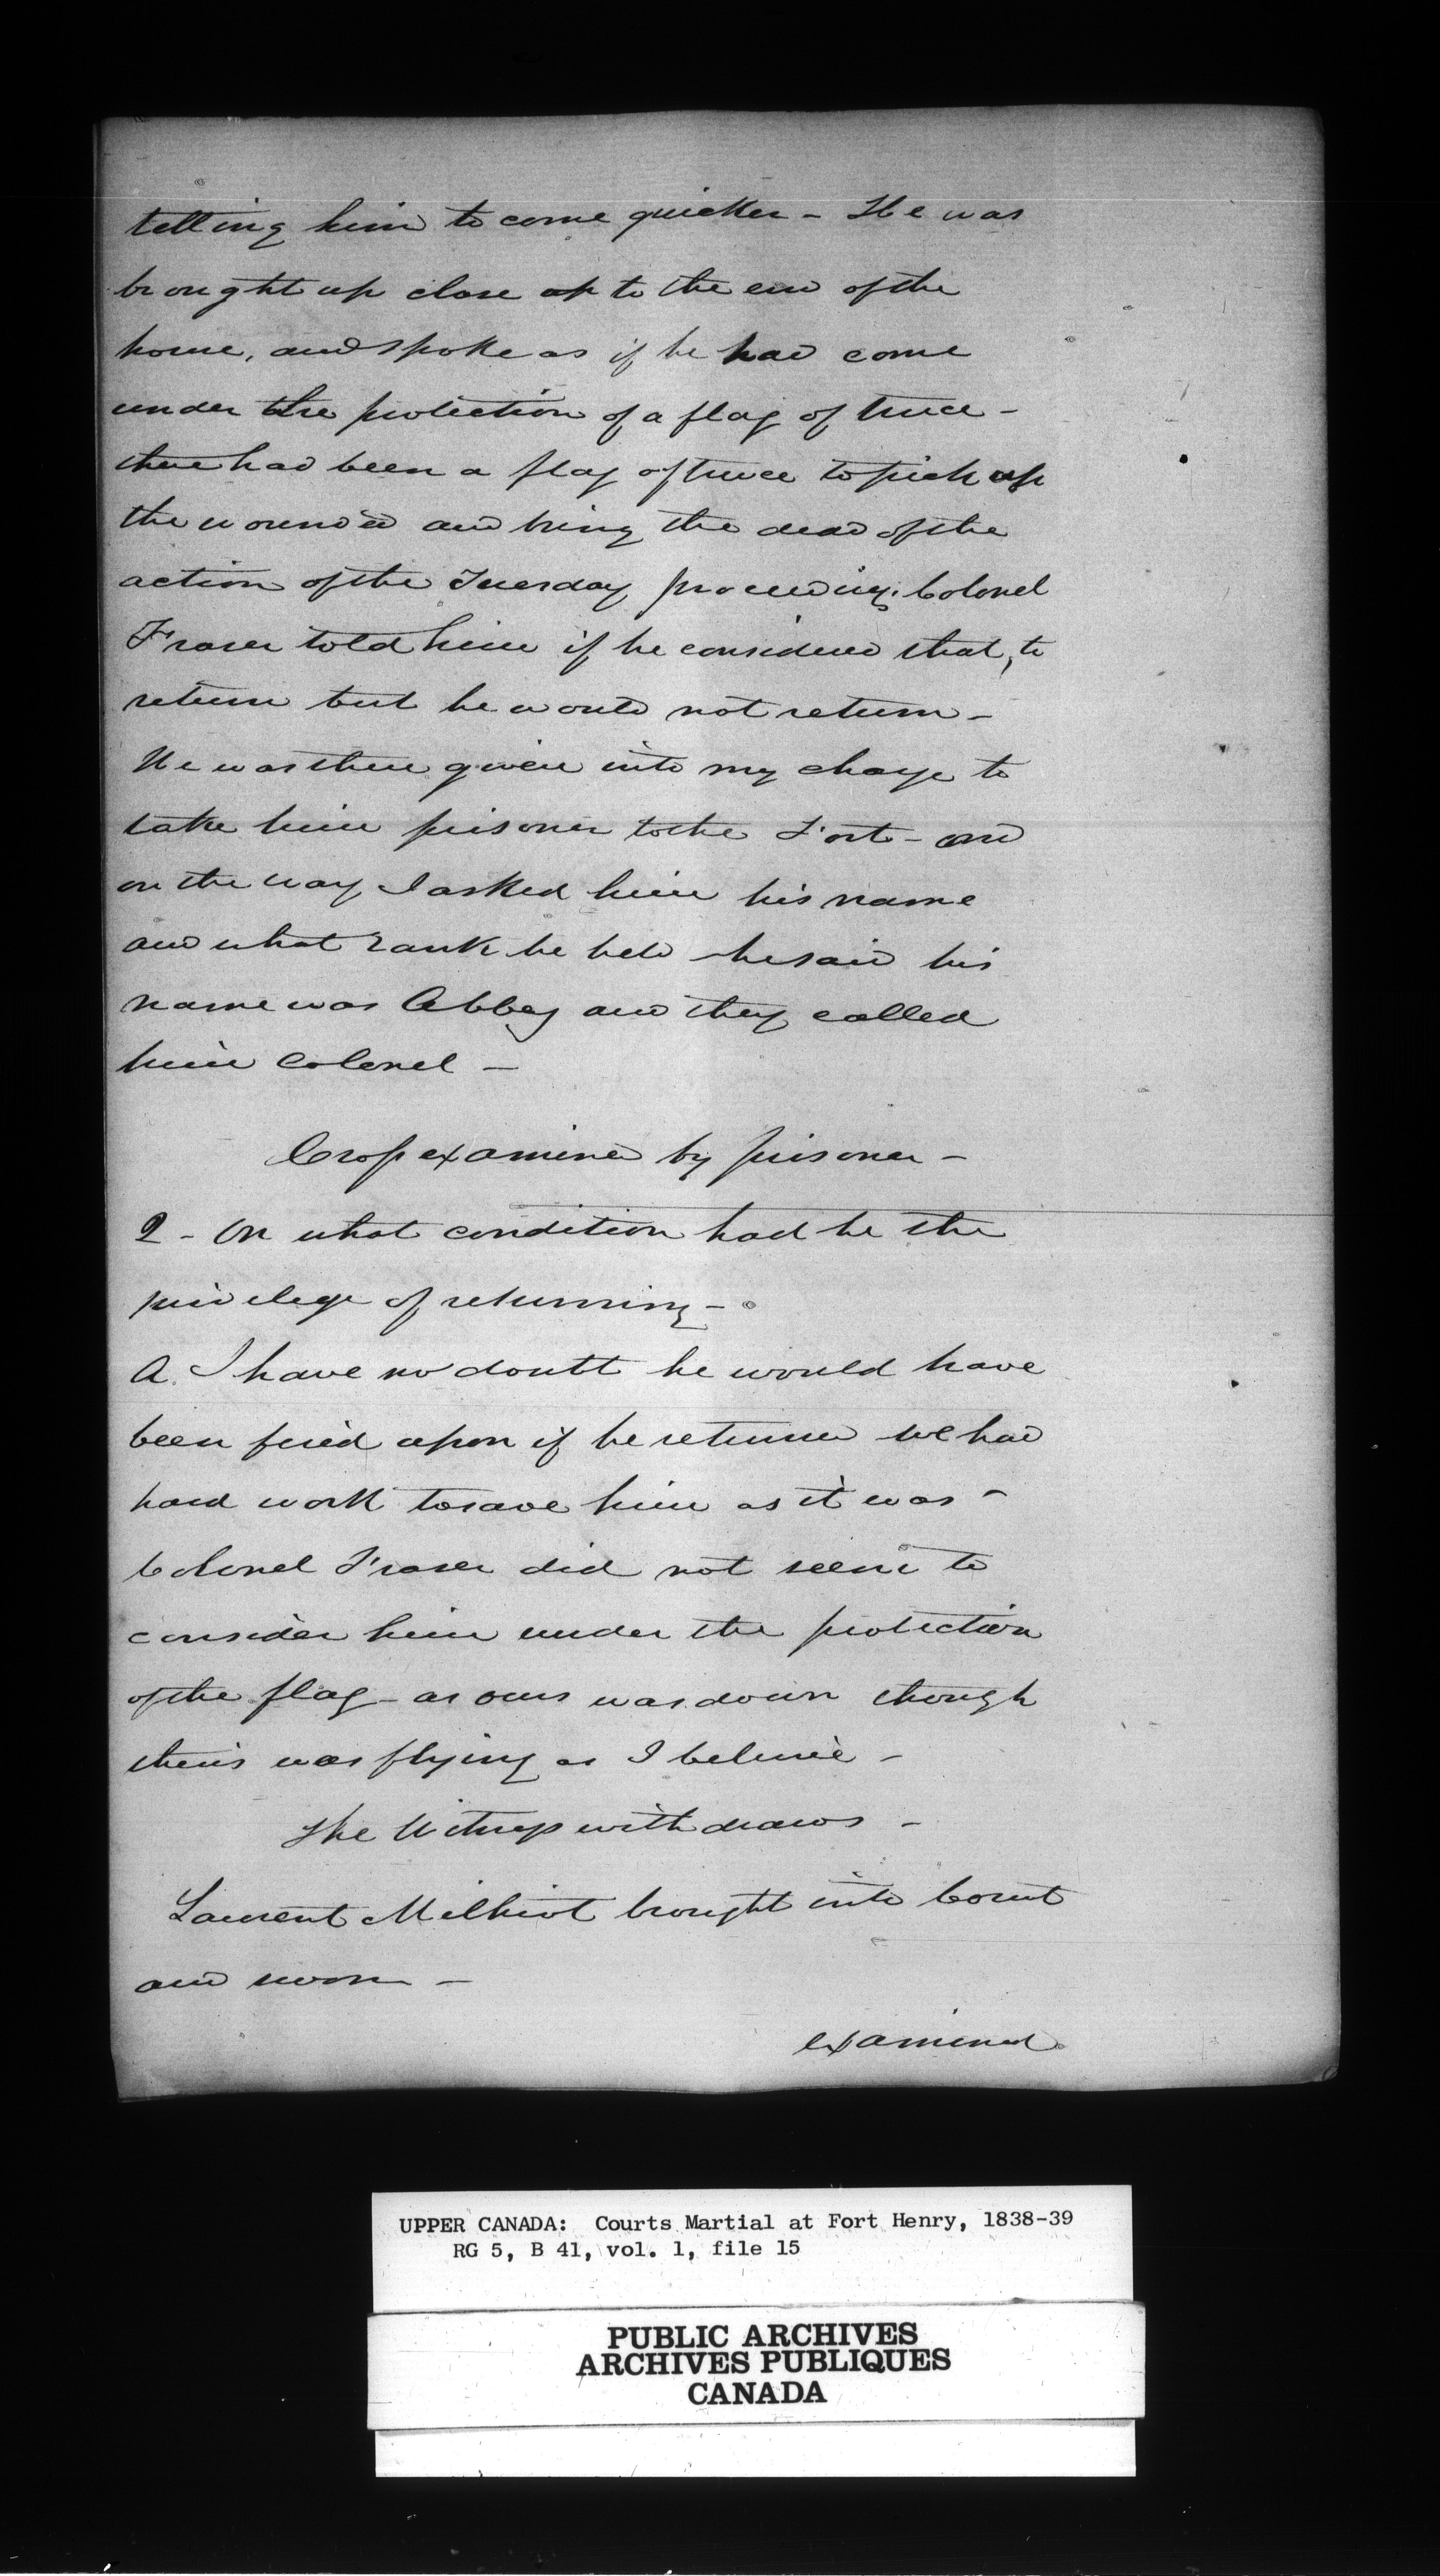 telling him to come quicker - He was
brought up close up to the end of the
house, and spoke as if he had come
under the protection of a flag of truce -
there had been a flag of truce to pick up
the wounded and bring the dead of the
action of the Tuesday proceeding. Colonel
Fraser told him if he considered that, to
return but he would not return -
He was then given into my charge to
take him prisoner to the Fort - and
on the way I asked him his name
and what rank he held - he said his
name was Abbey and they called
him Colonel -
Cross examined by prisoner -
Q - On what condition had he the
privilege of returning -
A. I have no doubt he would have
been fired upon if he returned we had
hard work to save him as it was -
Colonel Fraser did not seem to
consider him under the protection
of the flag - as ours was down though
theirs was flying as I believe -
The Witness withdraws -
Laurent Milhiot brought into Court
and sworn -
examined
UPPER CANADA: Courts Martial at Fort Henry, 1838-39
RG 5, B 41, vol. 1, file 15
PUBLIC ARCHIVES
ARCHIVES PUBLIQUES
CANADA